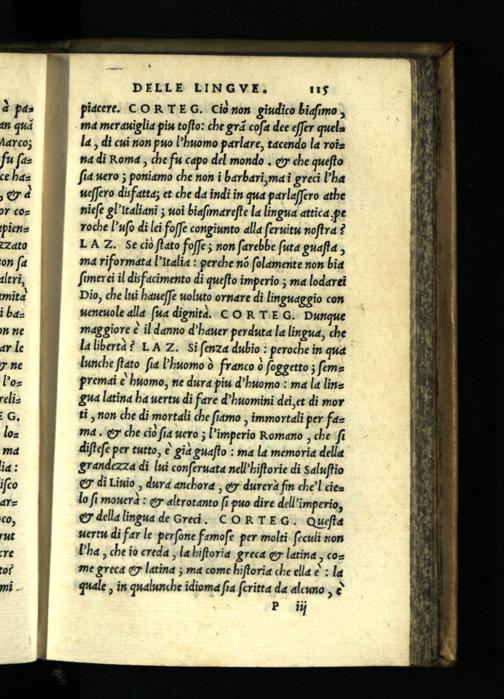 DELLE LINGVE. 115
piacere. CORTEG. Ciò non giudico biasimo,
ma merauiglia piu tosto: che grã cosa dee esser quel=
la, di cui non puo l'huomo parlare, tacendo la roi=
na di Roma, che fu capo del mondo. & che questo
sia uero; poniamo che non i barbari, ma i greci l'ha
uessero disfatta; et che da indi in qua parlassero athe
niese gl'Italiani; uoi biasimareste la lingua attica, pe
roche l'uso di lei fosse congiunto alla seruitu nostra?
LAZ. Se ciò stato fosse; non sarebbe suta guasta,
ma riformata l'Italia: perche nõ solamente non bia
simerei il disfacimento di questo imperio; ma lodarei
Dio, che lui hauesse uoluto ornare di linguaggio con
ueneuole alla sua dignità. CORTEG. Dunque
maggiore è il danno d'hauer perduta la lingua, che
la libertà? LAZ. Si senza dubio: peroche in qua
lunche stato sia l'huomo ò franco ò soggetto; sem=
premai è huomo, ne dura piu d'huomo: ma la lin=
gua latina ha uertu di fare d'huomini dei, et di mor
ti, non che di mortali che siamo, immortali per fa=
ma. & che ciò sia uero; l'imperio Romano, che si
distese per tutto, è già guasto: ma la memoria della
grandezza di lui conseruata nell'historie di Salustio
& di Liuio, dura anchora, & durerà fin che'l cie=
lo si mouerà: & altrotanto si puo dire dell'imperio,
& della lingua de Greci. CORTEG. Questa
uertu di far le persone famose per molti seculi non
l'ha, che io creda, la historia greca & latina, co=
me greca & latina; ma come historia che ella è: la
quale, in qualunche idioma sia scritta da alcuno, è
P iij
à pa=
an quã
Marco;
fu sa=
ce ha=
, & à
or co=
apien=
zzato
on sa
altri,
i ba=
on ne
ar le
& ne
l'o=
reli=
E G.
lo=
ma
lia:
isco
ar=
co,
rut
cre
to?
mi